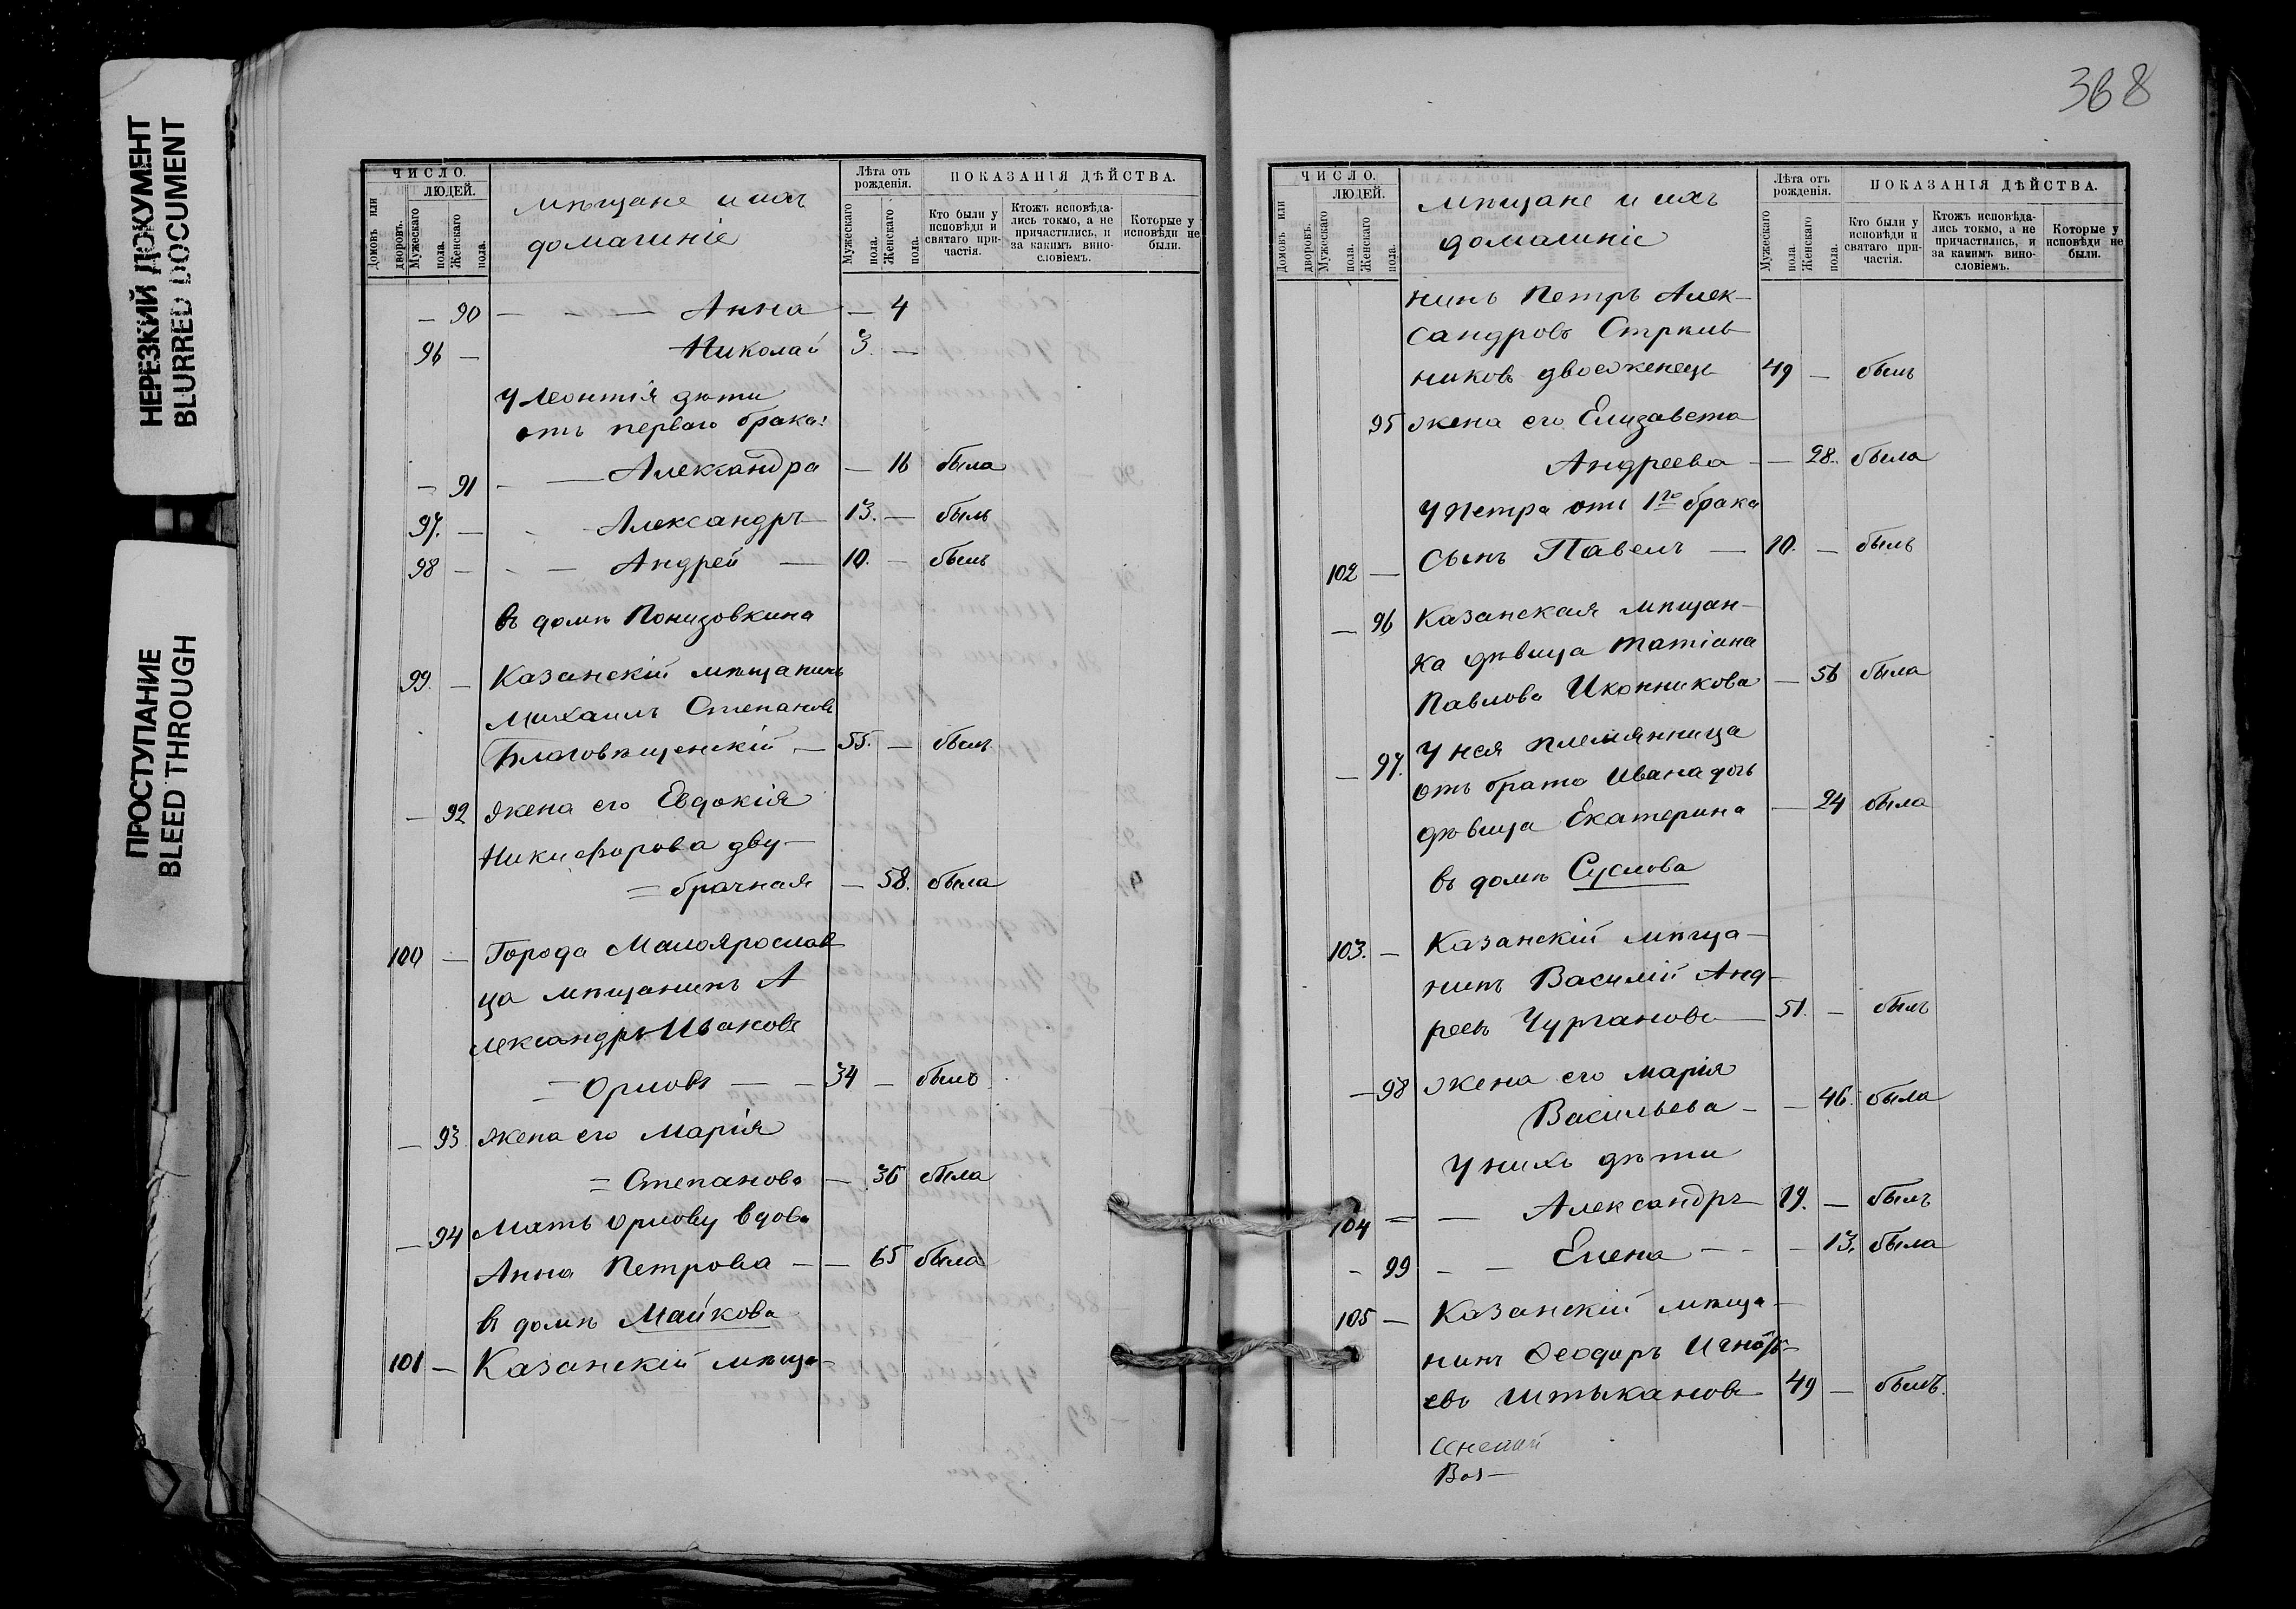 НЕРЕЗКИЙ ДОКУМЕНТ
BLURRED DOCUMENT
ПРОСТУПАНИЕ
BLEED THROUGH
ЧИСЛО.
ЛЮДЕЙ.
Домовъ или дворовъ.
Мужескаго пола.
Женскаго пола.
Мѣщане и ихъ
домашніе
Лѣта отъ рожденія.
Мужескаго пола.
Женскаго пола.
ПОКАЗАНІЯ ДѢЙСТВА.
Кто были у исповѣди и святаго причастія.
Ктожъ исповѣдались токмо, а не причастились, и за какимъ винословіемъ.
Которые у исповѣди не были.
— 90 — — — Анна — 4
96 — Николай 3. —
У Леонтія дѣти
отъ перваго брака:
— 91 — — Александра — 16 была
97. — - Александръ 13. — былъ
98 — - — Андрей — 10. — былъ
въ домѣ Понизовкина
99. — Казанскій мѣщанинъ
Михаилъ Степановъ
Благовѣщенскій — 55. — былъ
— 92 жена его Евдокія
Никифорова дву-
= брачная — 58. была
100 — Города Малоярослав
ца мѣщанинъ А
лександръ Ивановъ
= Орловъ — — 34 — былъ
— 93 жена его Марія
= Степанова — 36 была
— 94 Мать Орлову вдова
Анна Петрова — — 65 была
въ домѣ Майкова
101 — Казанскій мѣща-
368
ЧИСЛО.
ЛЮДЕЙ.
Домовъ или дворовъ.
Мужескаго пола.
Женскаго пола.
Мѣщане и ихъ
домашніе
Лѣта отъ рожденія.
Мужескаго пола.
Женскаго пола.
ПОКАЗАНІЯ ДѢЙСТВА.
Кто были у исповѣди и святаго причастія.
Ктожъ исповѣдались токмо, а не причастились, и за какимъ винословіемъ.
Которые у исповѣди не были.
нинъ Петръ Алек-
сандровъ Стрѣль
никовъ двоеженецъ 49 — былъ
95 жена его Елизавета
Андреева — — 28. была
У Петра отъ 1го брака
102 — Сынъ Павелъ — 10. — былъ
— 96 Казанская мѣщан-
ка дѣвица Татіана
Павлова Иконникова — 56 была
— 97. У нея племянница
отъ брата Ивана дочь
дѣвица Екатерина — 24 была
въ домѣ Суслова
103. — Казанскій мѣща-
нинъ Василій Анд-
реевъ Чургановъ — 51. — былъ
— 98 жена его Марія
Васильева — — 46. была
У нихъ дѣти
104 — — Александръ 19. — былъ
- 99 — — Елена — - — 13. была
105 — Казанскій мѣща-
нинъ Ѳеодоръ Игнать-
евъ Штыкановъ 49 — былъ.
Воз-